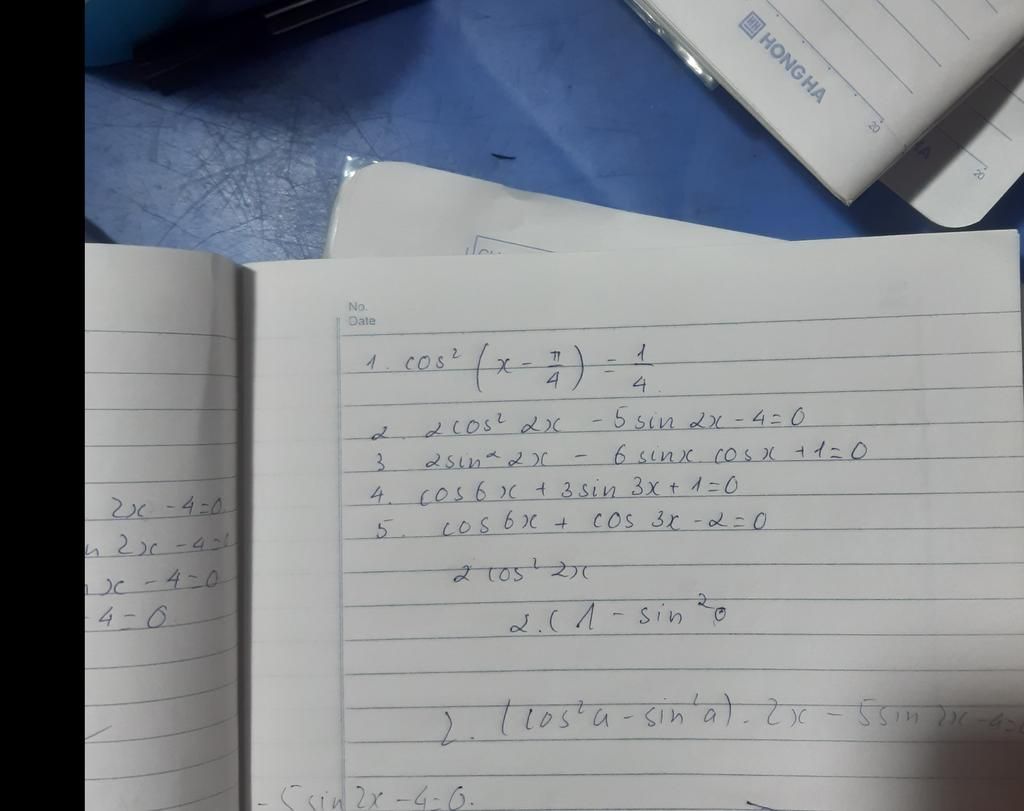 HONG HA
20
20
No.
Date
1. cos² (x - π/4) = 1/4
2. 2cos² 2x - 5sin 2x - 4=0
3 2sin² 2x - 6sinx cosx +1=0
4. cos6x + 3sin 3x+1=0
5. cos6x + cos 3x-2=0
2 cos² 2x
2.(1 - sin²
2. (cos²a - sin²a). 2x - 5sin 2x -4=
- 5sin 2x -4=0.
2x -4=0
2x -4=
x -4=0
4=0